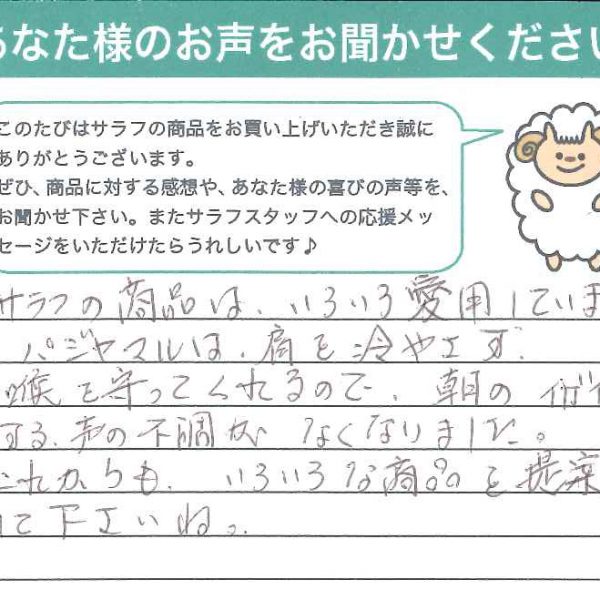 あなた様のお声をお聞かせください
このたびはサラフの商品をお買い上げいただき誠に
ありがとうございます。
ぜひ、商品に対する感想や、あなた様の喜びの声等を、
お聞かせ下さい。またサラフスタッフへの応援メッ
セージをいただけたらうれしいです♪
サラフの商品は、いろいろ愛用していま
パジャマルは、肩を冷やさず、
喉を守ってくれるので、朝の
する、声の不調が なくなりました。
これからも、いろいろな商品を提案
して下さいねっ。